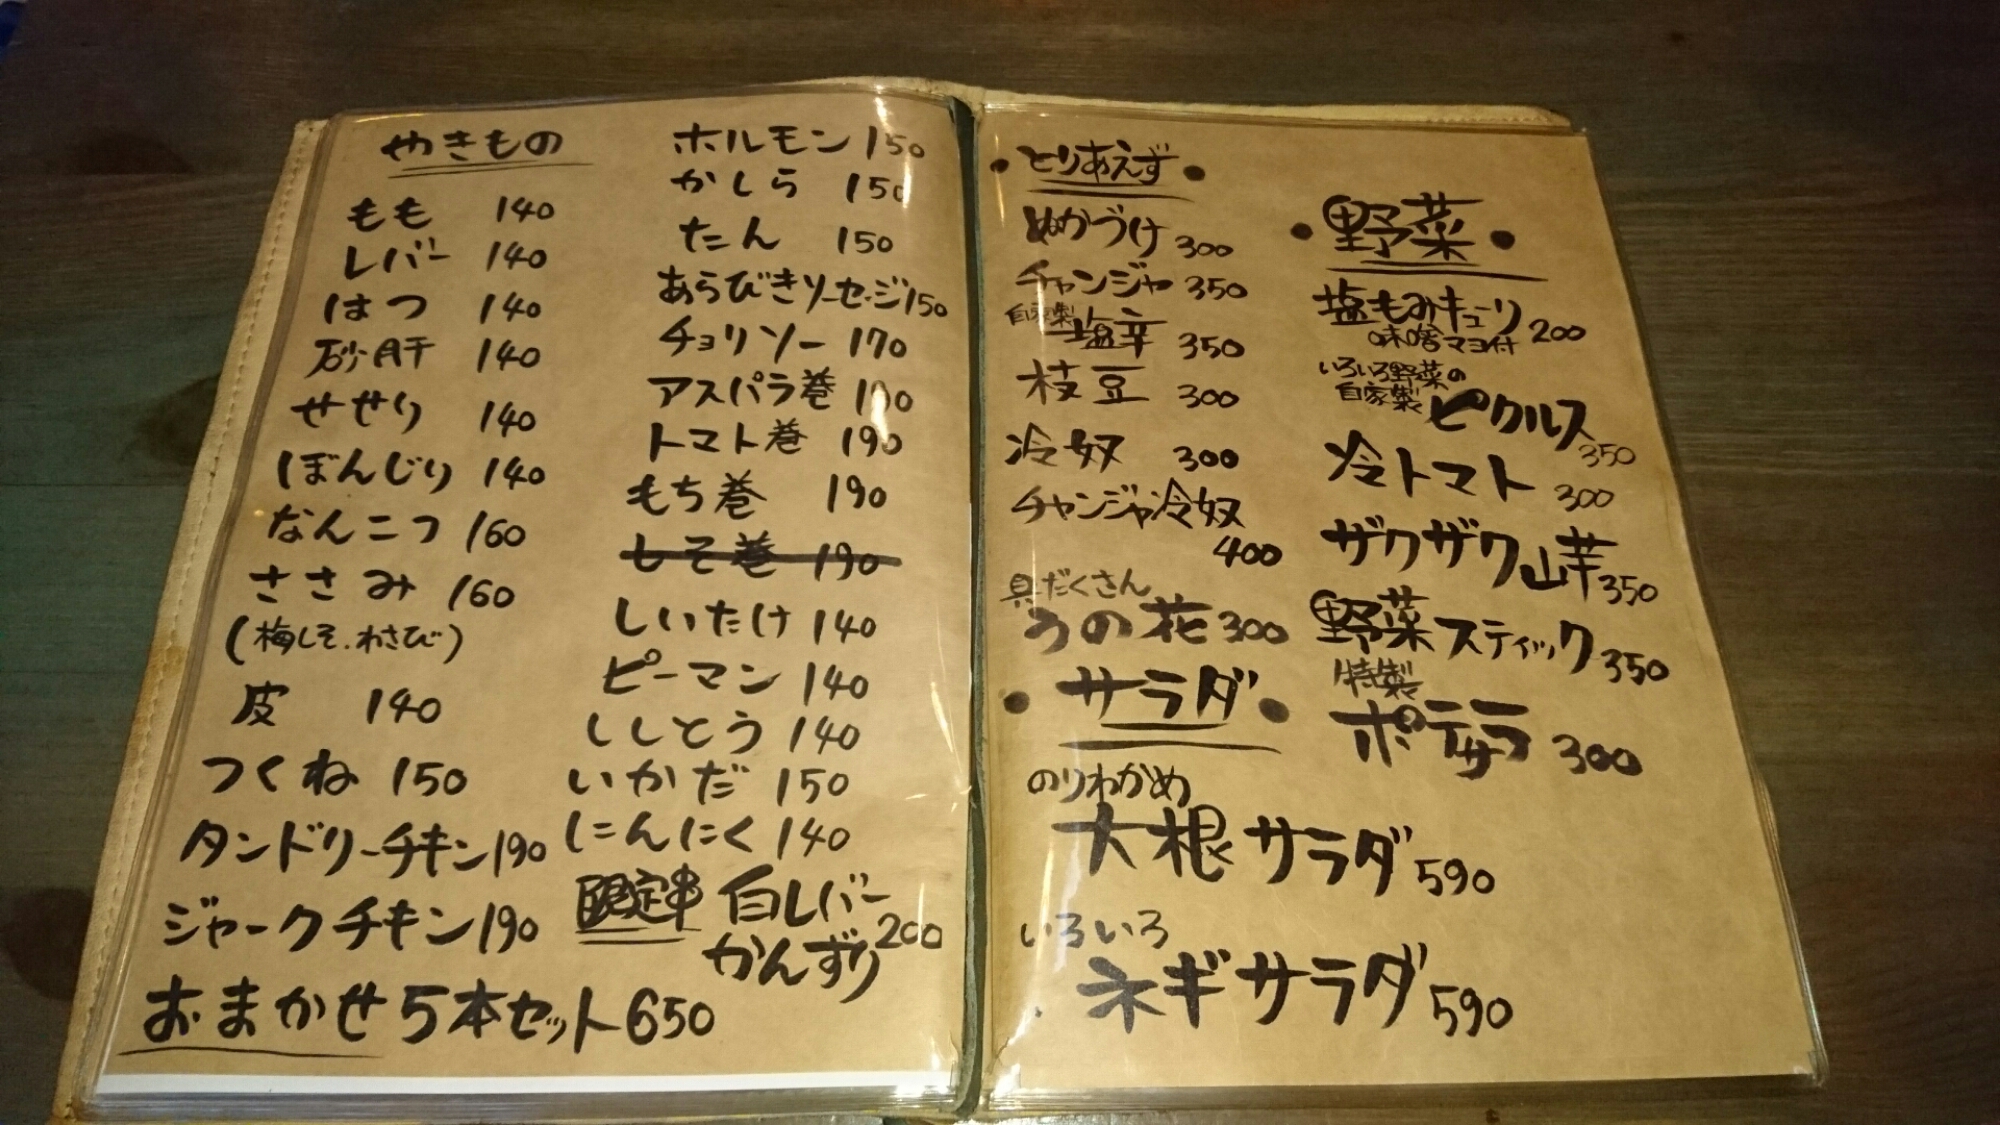 やきもの
もも 140
レバー 140
はつ 140
砂肝 140
せせり 140
ぼんじり 140
なんこつ 160
ささみ 160
(梅しそ.わさび)
皮 140
つくね 150
タンドリーチキン 190
ジャークチキン 190
おまかせ5本セット 650
ホルモン 150
かしら 150
たん 150
あらびきソーセージ 150
チョリソー 170
アスパラ巻
トマト巻 190
もち巻 190
しそ巻 190
しいたけ 140
ピーマン 140
ししとう 140
いかだ 150
にんにく 140
限定串 白レバー
かんずり 200
・とりあえず・
ぬかづけ 300
チャンジャ 350
自家製
塩辛 350
枝豆 300
冷奴 300
チャンジャ冷奴
400
具だくさん
うの花 300
・サラダ・
のりわかめ
大根サラダ 590
いろいろ
ネギサラダ 590
・野菜・
塩もみキューリ
味噌マヨ付 200
いろいろ野菜の
自家製 ピクルス
350
冷トマト 300
ザクザク山芋 350
野菜スティック 350
特製
ポテサラ 300